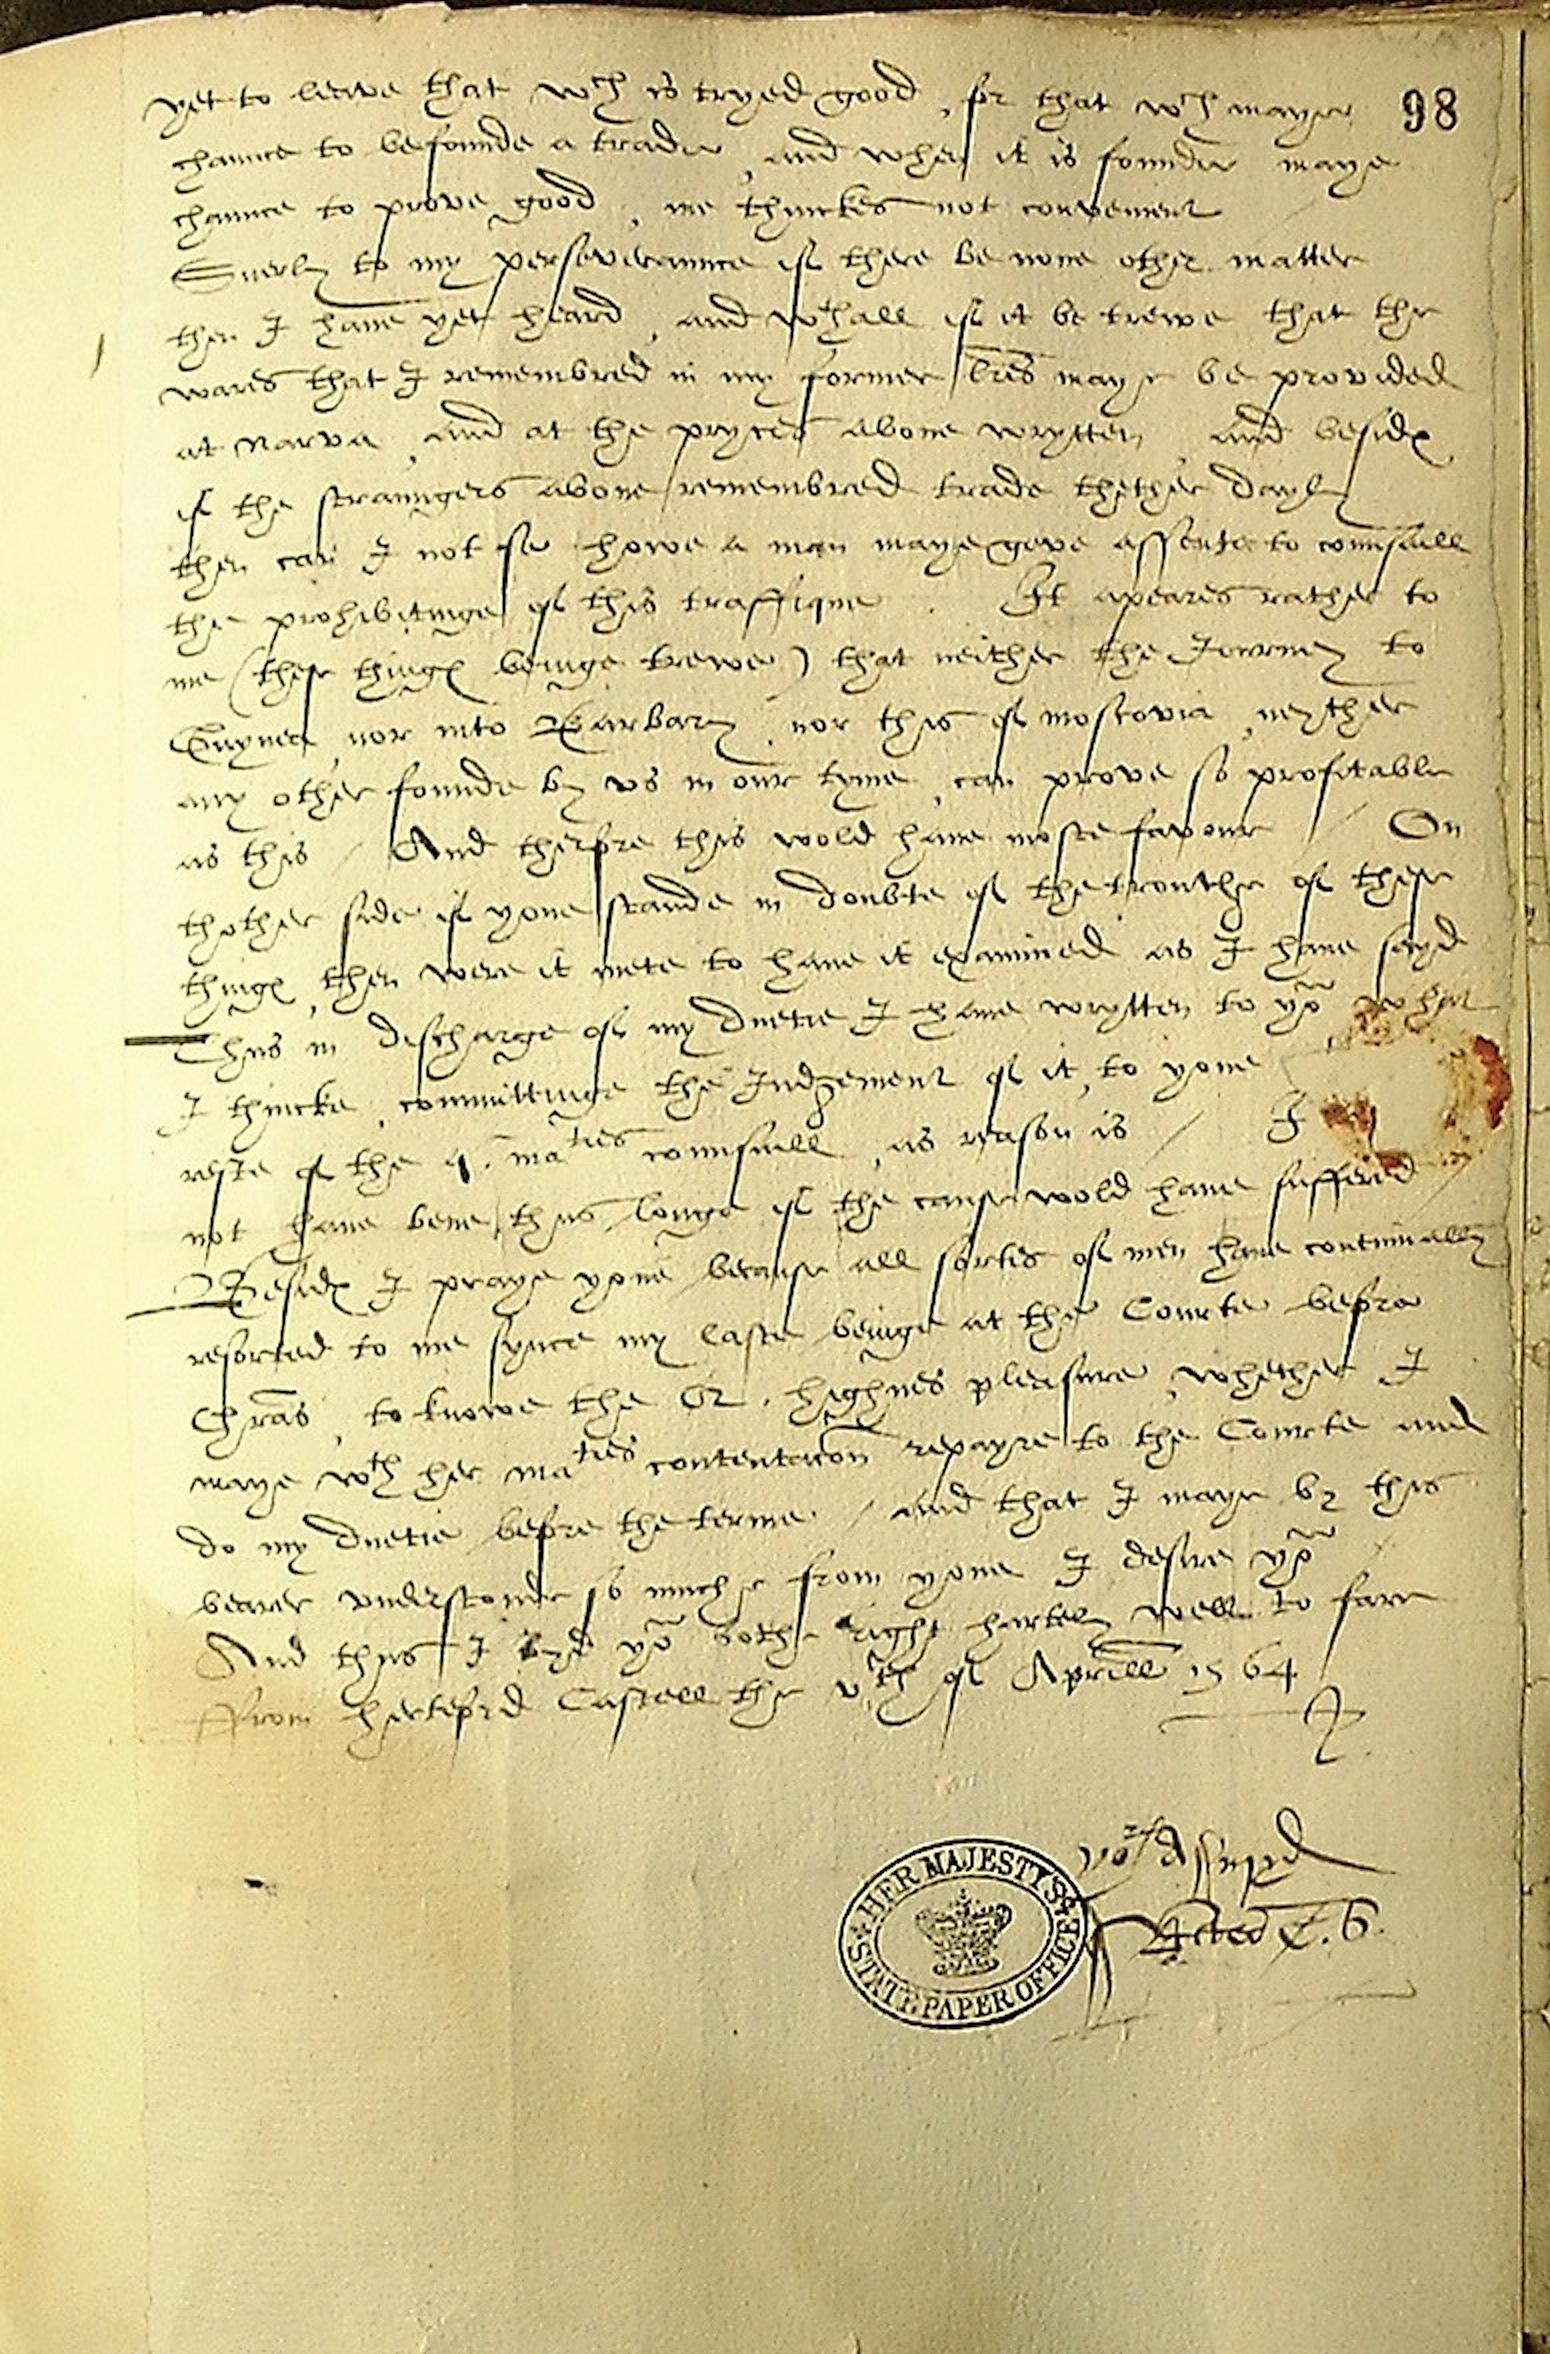 98
yet to leave that wch is tryed good, for that wch maye
chaunce to be founde a trade, and when it is founde maye
chaunce to prove good, me thinckes not convenient
Suerly to my perseveraunce if there be none other matter
then I haue yet heard, and wthall if it be trewe that the
wares that I remembred in my former lres maye be provided
at Narva, and at the pryces aboue wrytten, and besides
if the straungers aboue remembred trade thether dayly
then can I not se howe a man maye geve assente to counsaill
the prohibitinge of this traffique. It apeares rather to
me (these thinges beinge trewe) that neither the Journey to
Guynea, nor into Barbary, nor this of moscovia, neyther
any other founde by vs in our tyme, can prove so profitable
as this / And therfore this wold haue moste favour / On
thother side if youe stande in doubte of the trouthe of these
thinges, then were it mete to haue it examined as I haue sayd
Thus in discharge of my duetie I haue wrytten to yow what
I thincke, committinge the Judgement of it, to youe
reste of the q. maties counsaill, as reason is / I
not haue bene thus longe if the cause wold haue suffered
Besides I praye youe because all sortes of men haue continually
resorted to me synce my laste beinge at the Courte before
Chras, to knowe the Q. highnes pleasure, whether I
maye wth her maties contentacon repayre to the Courte and
do my duetie before the terme / And that I maye by this
bearer understonde so muche from youe I desire yow
And thus I byd yow bothe right hartely well to fare
From hertford Castell the vth of Aprill 1564
yor Assured
HER MAJESTY'S
STATE PAPER OFFICE